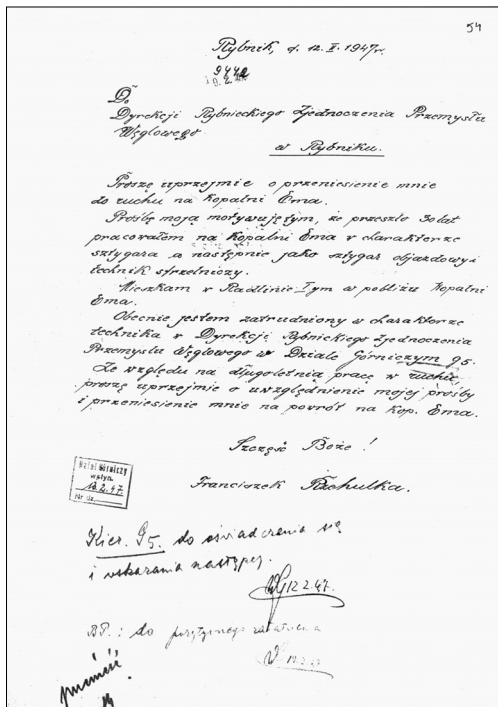 54
Rybnik, d. 12. II. 1947r.
Do
Dyrekcji Rybnickiego Zjednoczenia Przemysłu
Węglowego
w Rybniku.
Proszę uprzejmie o przeniesienie mnie
do ruchu na kopalni Ema.
Prośbę moją motywuję tym, że przeszło 30 lat
pracowałem na kopalni Ema w charakterze
sztygara a następnie jako sztygar objazdowy i
technik strzelniczy.
Mieszkam w Radlinie I ym w pobliżu kopalni
Ema.
Obecnie jestem zatrudniony w charakterze
technika w Dyrekcji Rybnickiego Zjednoczenia
Przemysłu Węglowego w Dziale Górniczym G5.
Ze względu na długoletnią pracę w ruchu,
proszę uprzejmie o uwzględnienie mojej prośby
i przeniesienie mnie na powrót na kop. Ema.
Szczęść Boże!
Franciszek
Dział Górniczy
wpłyn.
12.2.47.
Nr dz.
Kier. G5. do oświadczenia się
i wskazania następcy.
12 2.47.
do załatwienia
12.2.47